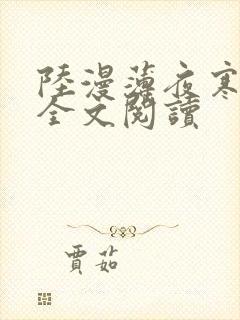 陸漫薄夜寒
全文閱讀
賈茹